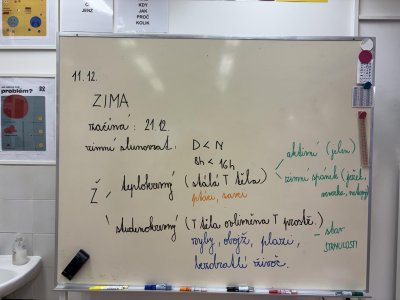 C.
JENŽ
KDY
JAK
PROČ
KOLIK
problém?
11.12.
ZIMA
začíná: 21.12.
zimní slunovrat: D < N
8h < 16h
Ž
teplokrevný (stálá T těla)
ptáci, savci
aktivní (jelen)
zimní spánek (ježek,
studenokrevný (T těla ovlivněna T prostř.)
ryby, obojž., plazi,
bezobratlí živoč.
stav
STRNULOSTI